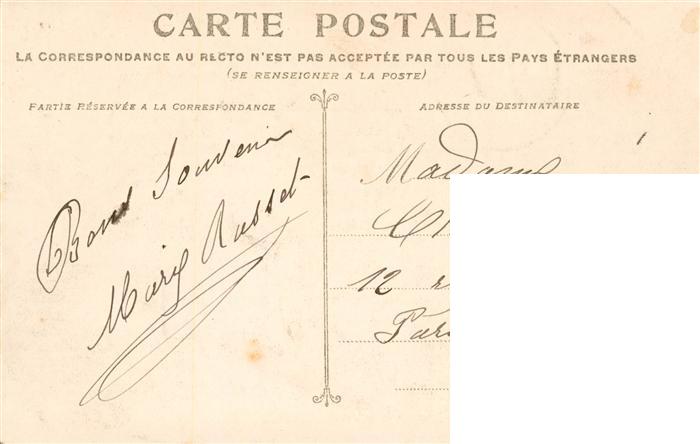 CARTE POSTALE
LA CORRESPONDANCE AU RECTO N'EST PAS ACCEPTÉE PAR TOUS LES PAYS ÉTRANGERS
(SE RENSEIGNER A LA POSTE)
PARTIE RÉSERVÉE A LA CORRESPONDANCE
Bons Souvenir
Marie Russet
ADRESSE DU DESTINATAIRE
Madame
12